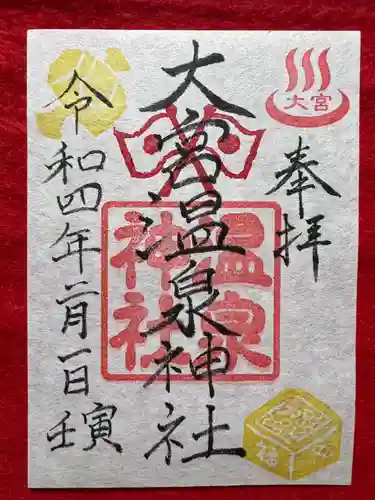 奉拝
大宮温泉神社
令和四年二月一日壬寅
大宮
温泉
神社
福